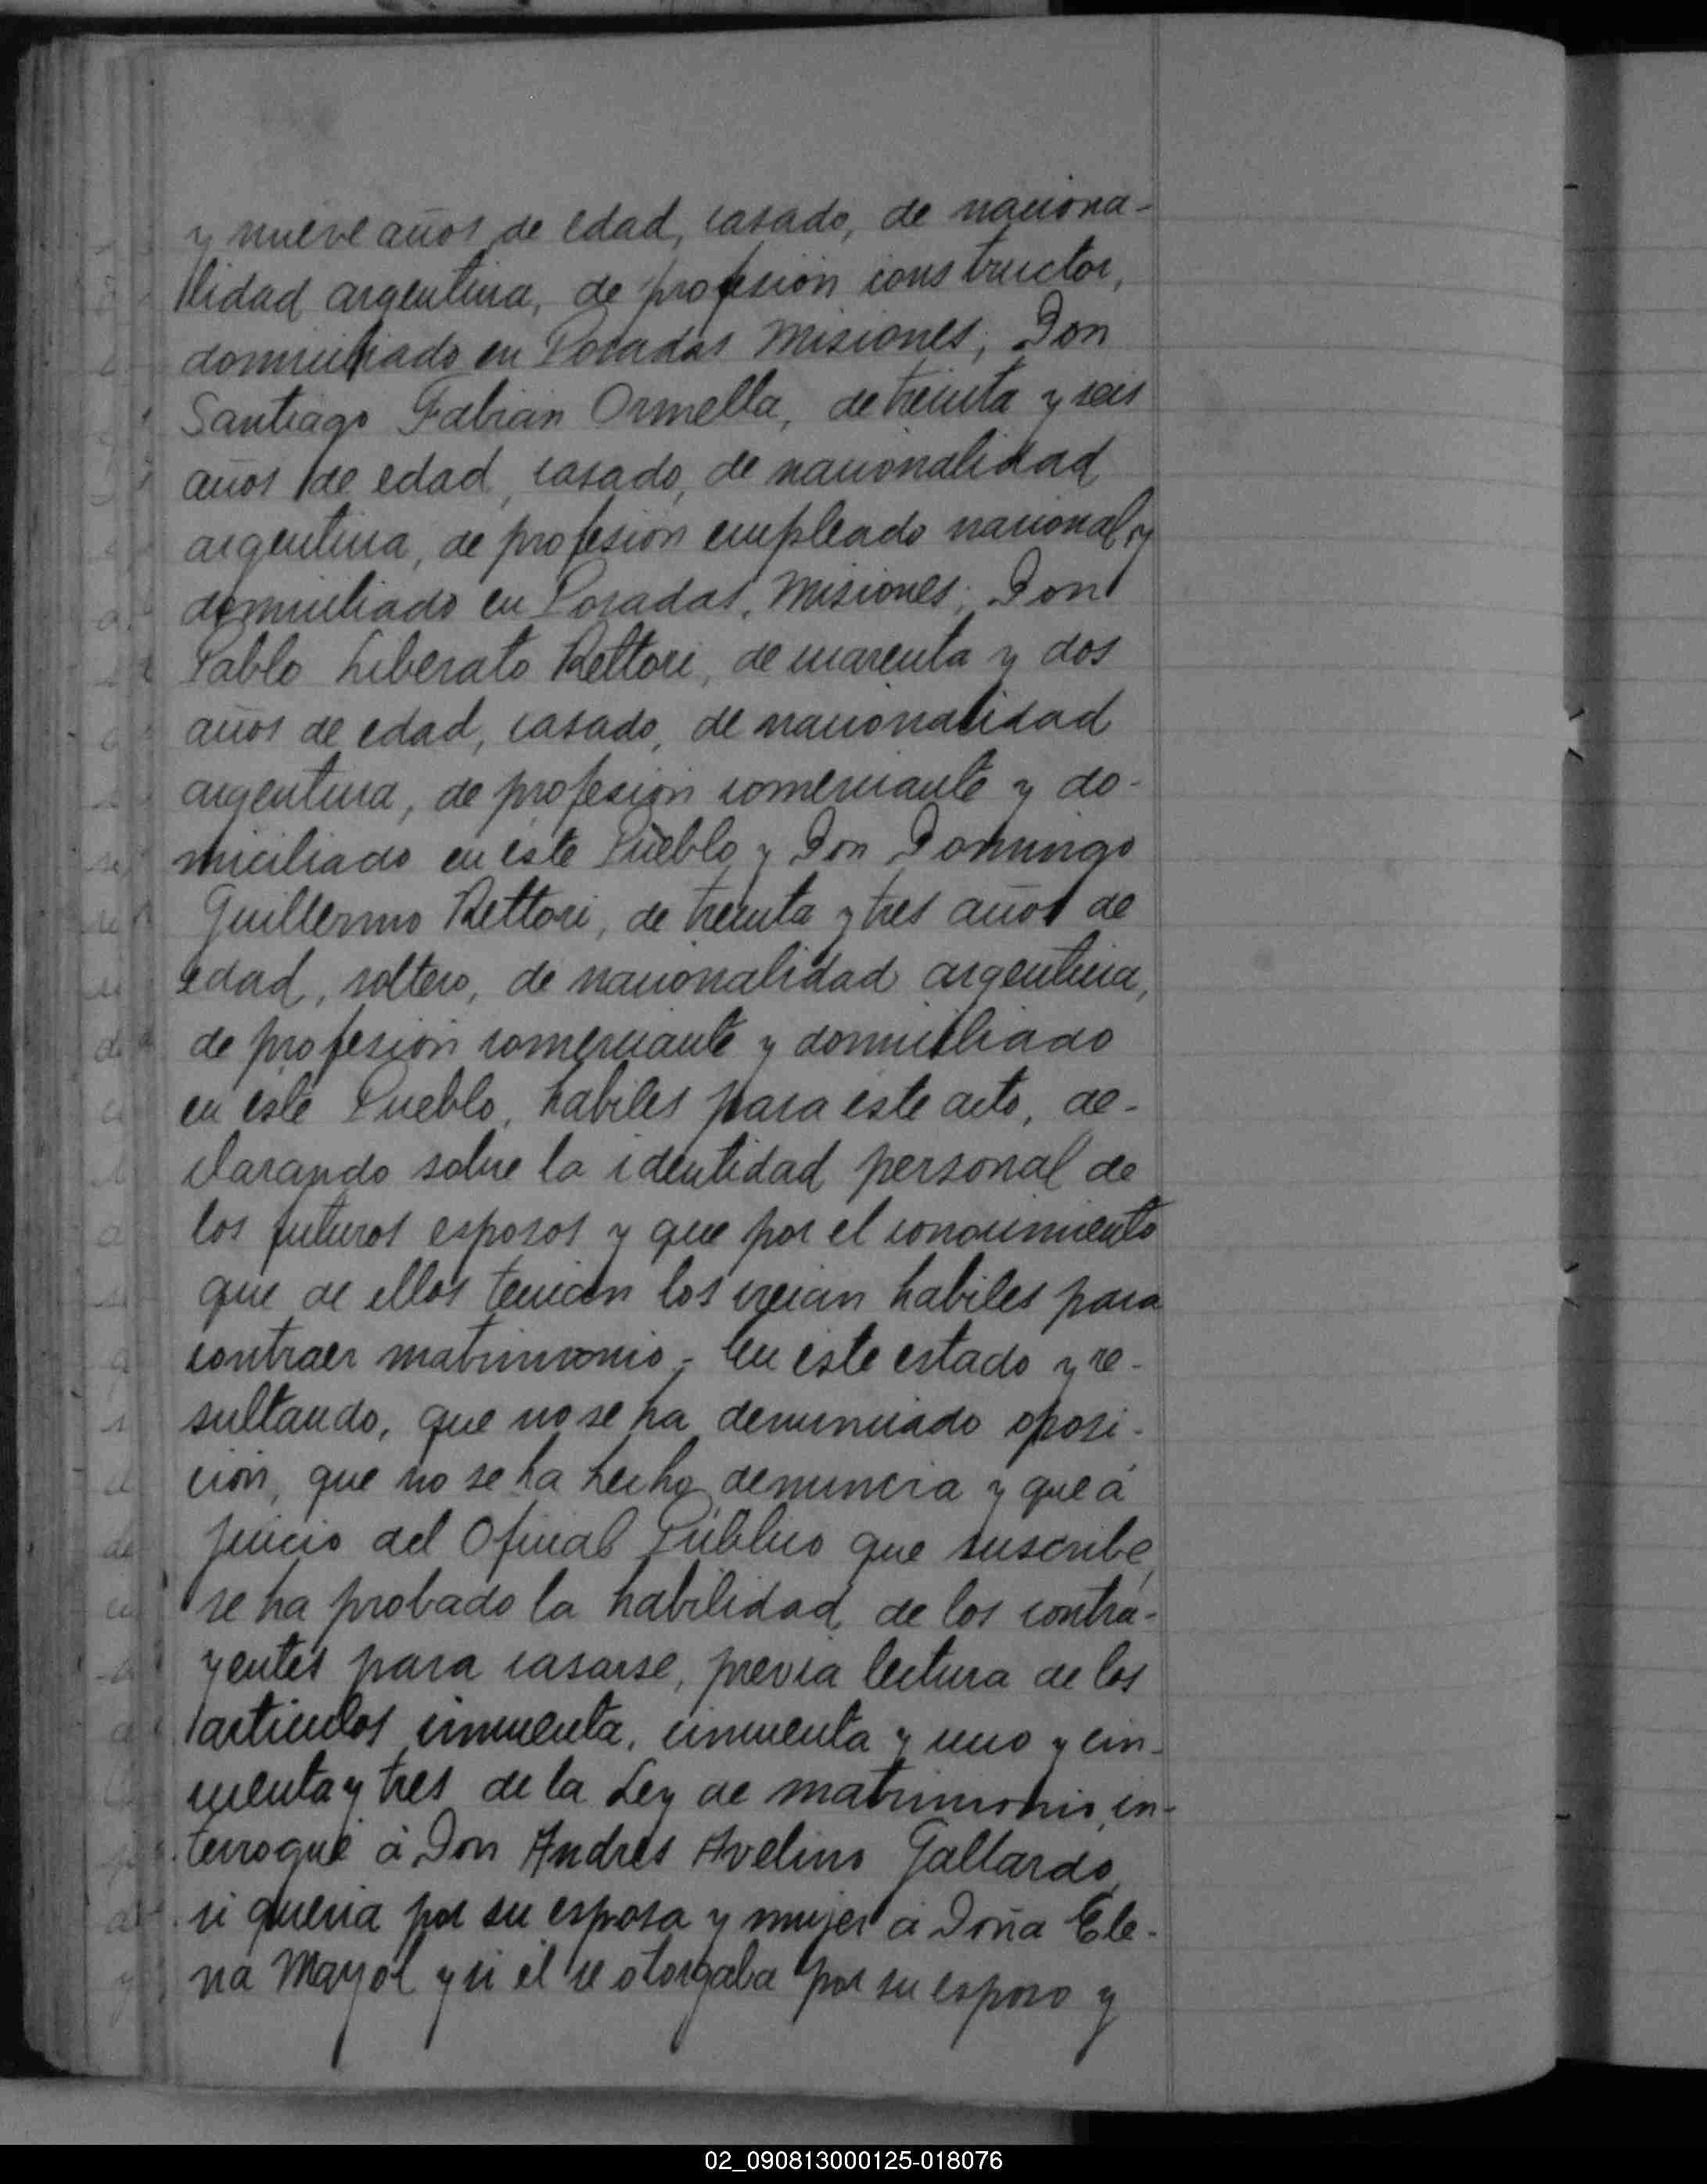 y nueve años de edad, casado, de naciona-
lidad argentina, de profesión constructor,
domiciliado en Posadas Misiones; Don
Santiago Fabián Ormella, de treinta y seis
años de edad, casado, de nacionalidad
argentina, de profesión empleado nacional y
domiciliado en Posadas, Misiones; Don
Pablo Liberato Rettori, de cuarenta y dos
años de edad, casado, de nacionalidad
argentina, de profesión comerciante y do-
miciliado en este Pueblo y Don Domingo
Guillermo Rettori, de treinta y tres años de
edad, soltero, de nacionalidad argentina,
de profesión comerciante y domiciliado
en este Pueblo, habiles para este acto, de-
clarando sobre la identidad personal de
los futuros esposos y que por el conocimiento
que de ellos tenían los creían habiles para
contraer matrimonio - En este estado y re-
sultando, que no se ha denunciado oposi-
ción, que no se ha hecho denuncia y que á
juicio del Oficial Público que suscribe,
se ha probado la habilidad de los contra-
yentes para casarse, previa lectura de los
articulos cincuenta, cincuenta y uno y cin-
cuenta y tres de la Ley de matrimonio, in-
terrogué á Don Andrés Avelino Gallardo,
si quería por su esposa y mujer á Doña Ele-
na Mayol y si él se otorgaba por su esposo y
02_090813000125-018076